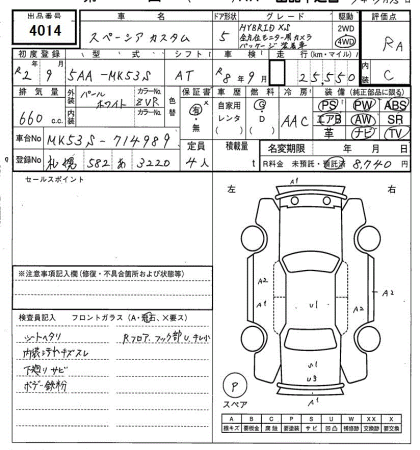 出品番号 車名 ドア形状 グレード 駆動 評価点
4014 スペーシア カスタム 5 HYBRID XS 2WD 4WD RA
全方位モニター用カメラ
パッケージ装着車
初度登録 型式 シフト 車検 走行(km・マイル) 内装
R2年9月 5AA-MK53S AT R8年9月 25550 C
排気量 外装 カラーNo. 色替 保証書 車歴 燃料 冷房 装備(純正部品に限る)
660 c.c. パールホワイト ZVR 有・無 自家用 レンタ ( ) G D ( ) AAC PS PW ABS
エアB AW SR
革 ナビ TV
内装 カラーNo.
車台No MK53S-714989 定員 積載量 名変期限 年 月 日
登録No 札幌 582 あ 3220 4人 t R料金 未預託・預託済 8,740円
セールスポイント
左 右
A1
A2
A1
A2
U1
S1
U3
A1
※注意事項記入欄(修復・不具合箇所および状態等)
検査員記入 フロントガラス(A・飛石・X要ス)
シートヘタリ Rフロア、フック部U、チレ小
内装コゲ穴キズスレ
下廻りサビ
ボデー鉄粉
P
スペア
A B C P S U W X XX X
線キズ 要板金 腐蝕 要塗装 サビ 凹凸 補修跡 交換跡 要交換